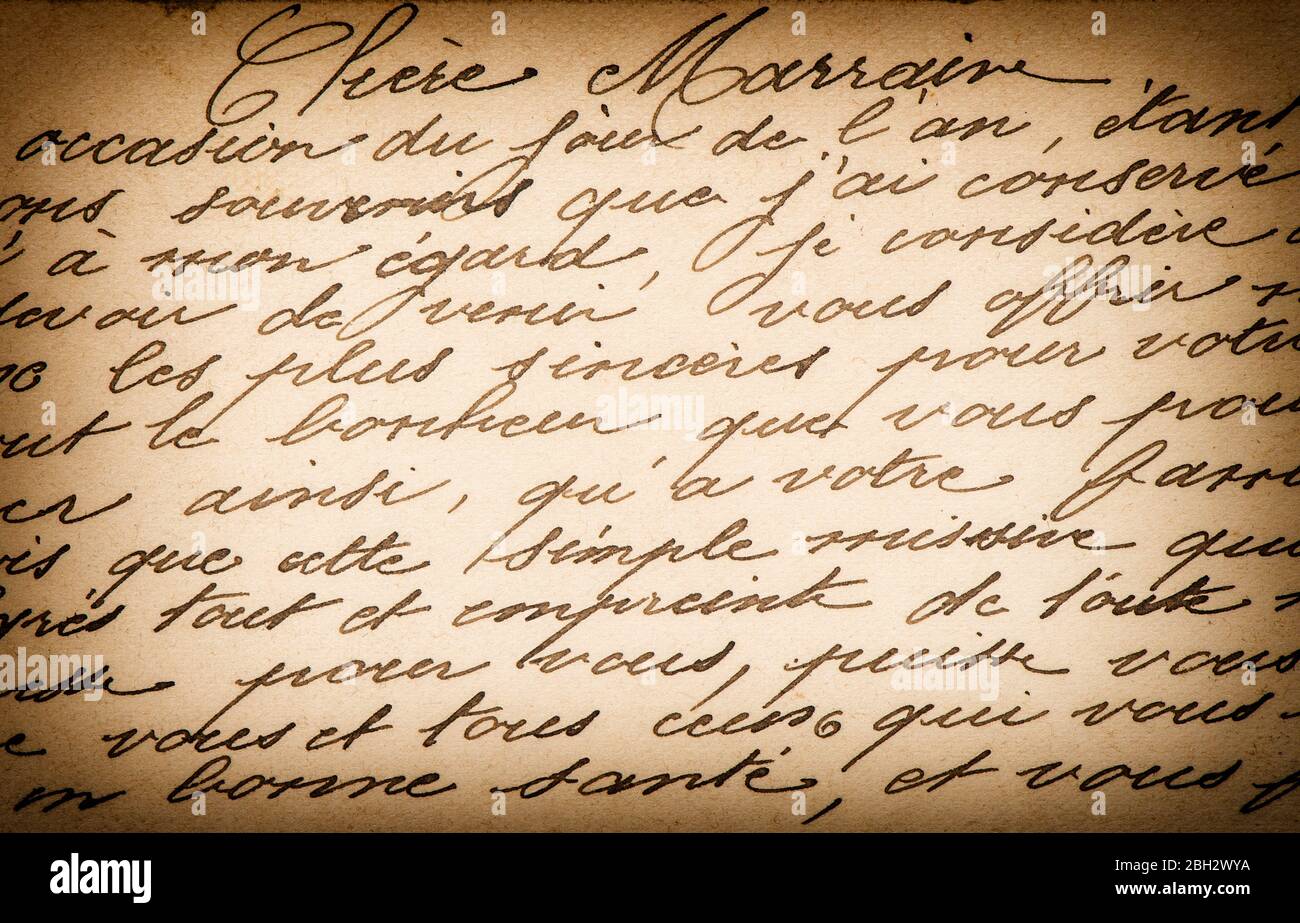 Chère Marraine
occasion du jour de l'an, étant
ons souvenirs que j'ai conservé
à mon égard, je considère
devoir de venir vous offrir
les plus sincères pour votre
out le bonheur que vous pou
er ainsi, qu'à votre fami
is que cette simple missive qui
près tout et empreinte de toute
esse pour vous, puisse vous
e vous et tous ceux qui vous
en bonne santé, et vous p
alamy
Image ID: 2BH2WYA
www.alamy.com